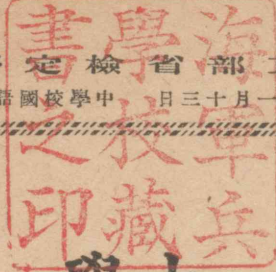 海軍兵
學校藏
書之印
部省檢定
一月十三日 中學校國語